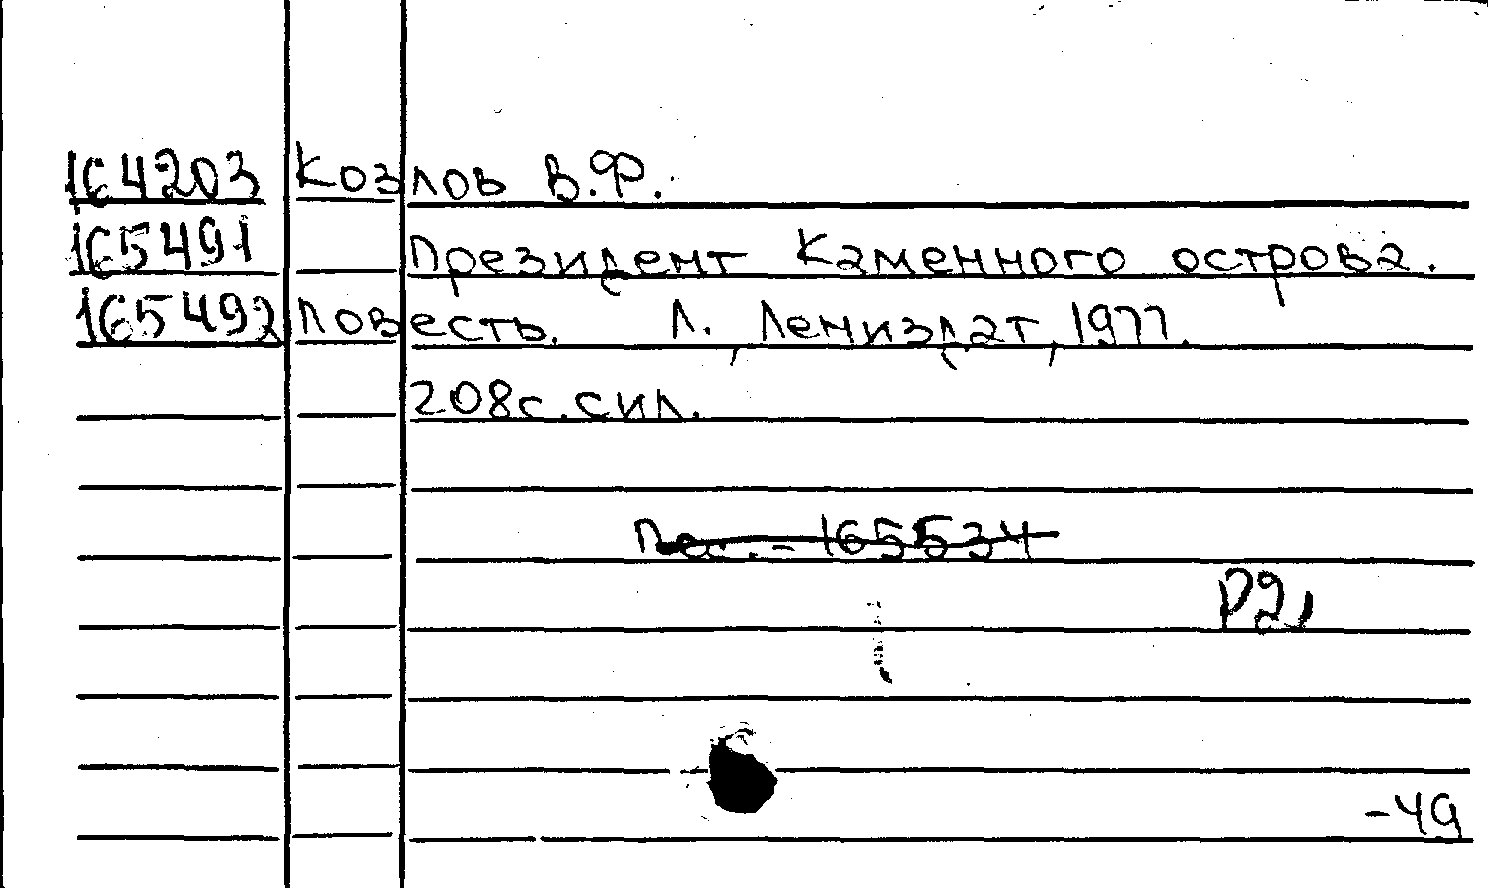 164203 Козлов В.Ф.
165491 Президент Каменного острова.
165492 Повесть. Л., Лениздат, 1977.
208с. с ил.
165534
Р2,
-49